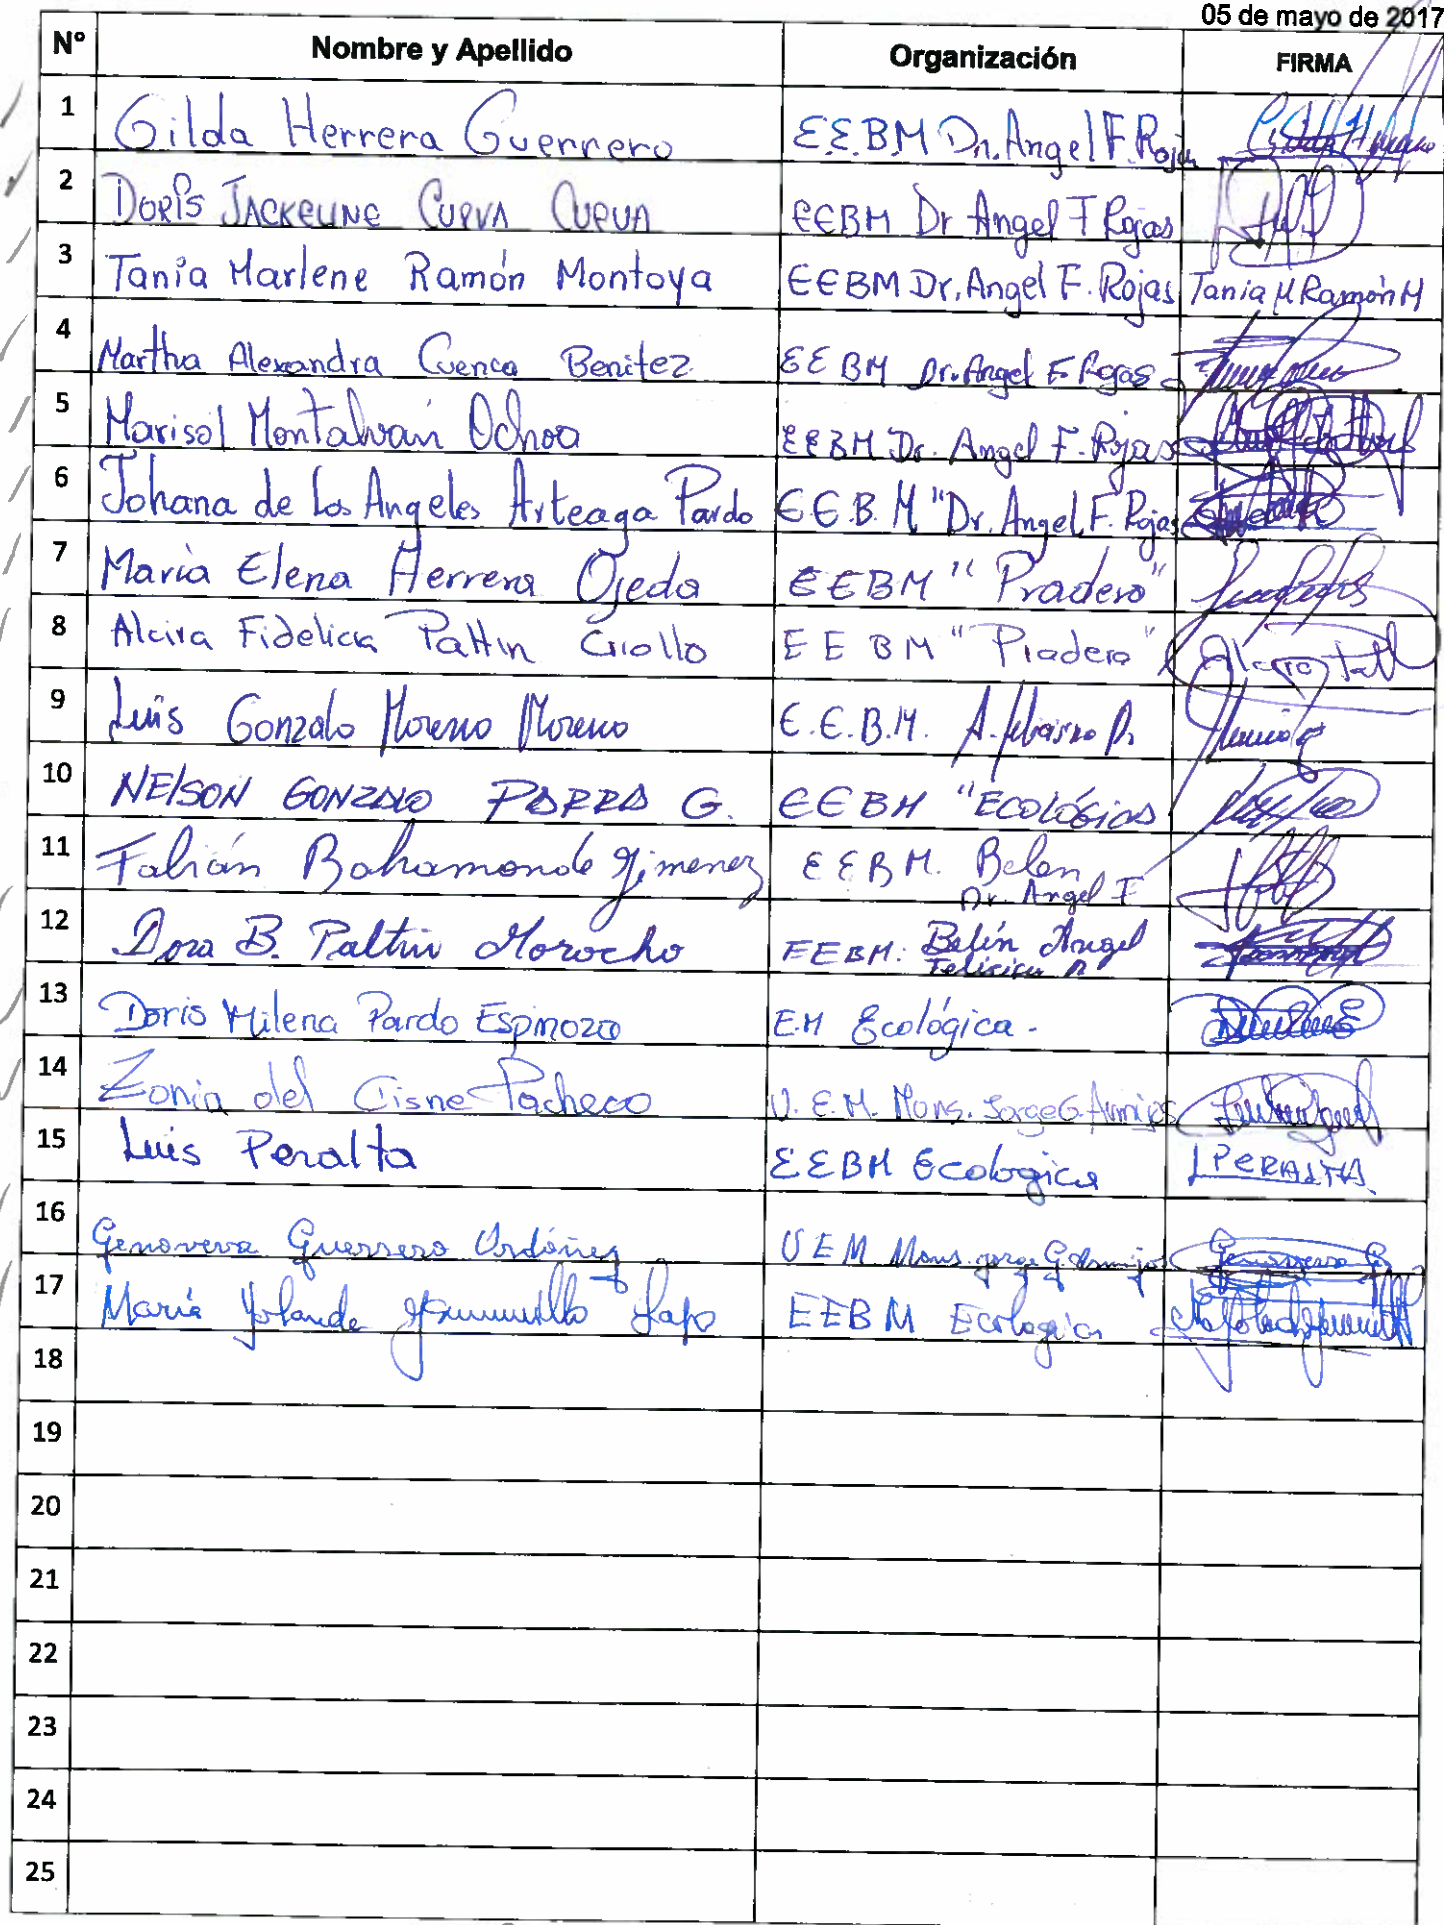 05 de mayo de 2017
N° Nombre y Apellido Organización FIRMA
1 Gilda Herrera Guerrero E.E.B.M Dr. Angel F. Rojas
2 DORIS JACKELINE CUEVA CUEVA EEBM Dr Angel F Rojas
3 Tania Marlene Ramón Montoya EEBM Dr. Angel F. Rojas Tania M Ramón M
4 Martha Alexandra Cuenca Benitez EEBM Dr. Angel F. Rojas
5 Marisol Montalván Ochoa EEBM Dr. Angel F. Rojas
6 Johana de los Angeles Arteaga Pardo E E.B.M "Dr. Angel F. Rojas
7 Maria Elena Herrera Ojeda EEBM "Pradera"
8 Alcira Fidelicia Paltin Criollo EEBM "Pradera"
9 Luis Gonzalo Moreno Moreno E.E.B.M. A.
10 NELSON GONZALO PARRA G. EEBM "ECOLÓGICA
11 Fabián Bahamonde Jimenez EEBM. Belen
Dr. Angel F
12 Dora B. Paltin Morocho EEBM. Belén Angel
13 Doris Milena Pardo Espinoza E.M Ecológica.
14 Zonia del Cisne Pacheco U.E.M. Mons. Jorge G. Armijos
15 Luis Peralta EEBM Ecologica L PERALTA
16 Genoveva Guerrero Ordóñez UEM Mons. Jorge G Armijos Genoveva G.
17 Maria Yolanda Japo EEBM Ecologica
18
19
20
21
22
23
24
25